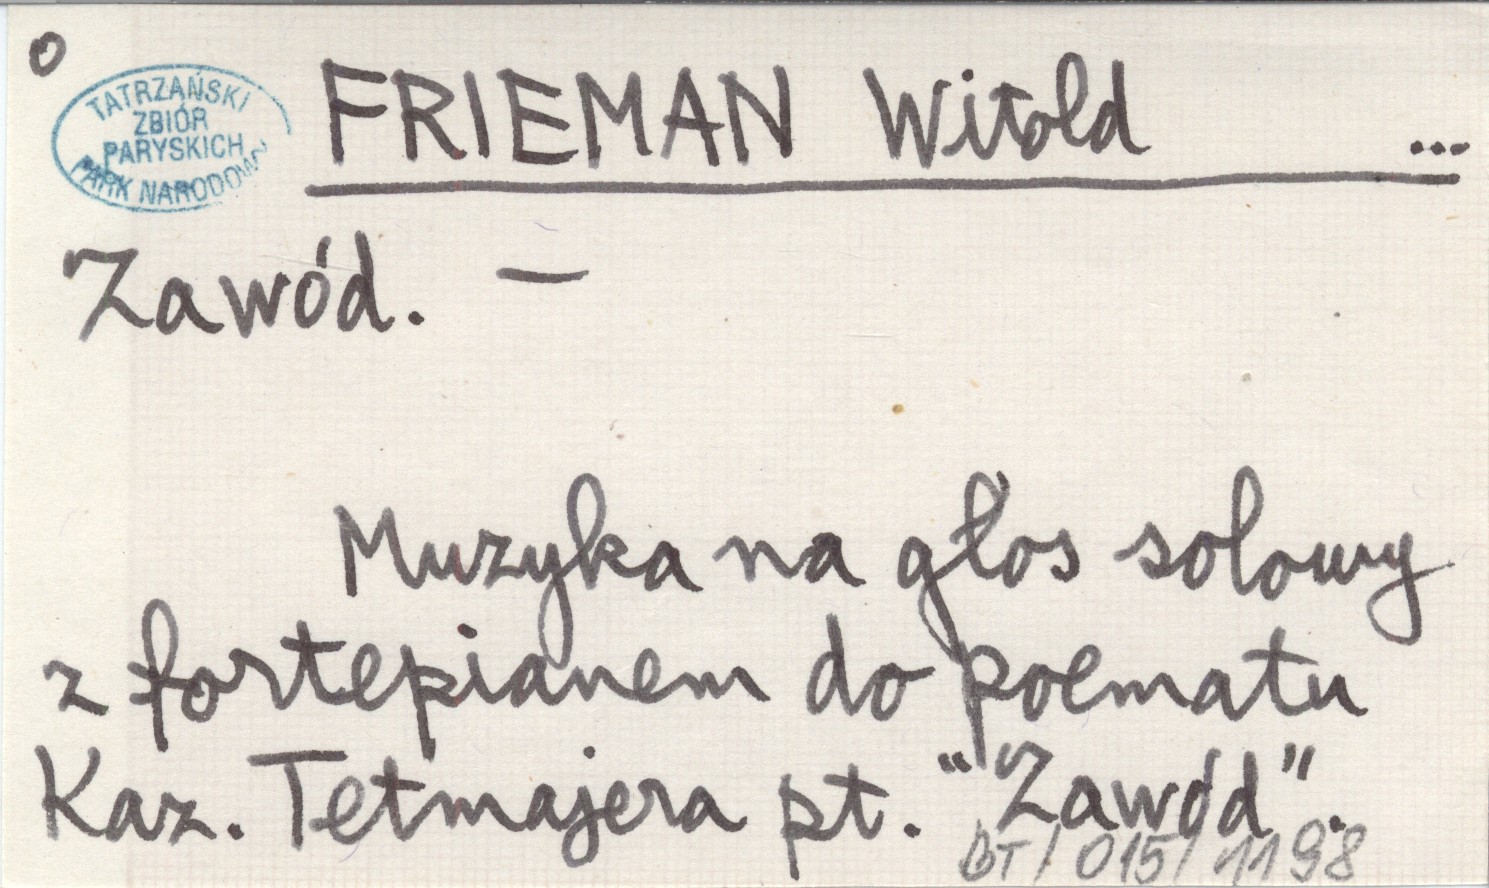 o
TATRZAŃSKI
ZBIÓR
PARYSKICH
PARK NARODOWY
FRIEMAN Witold ...
Zawód. —
Muzyka na głos solowy
z fortepianem do poematu
Kaz. Tetmajera pt. "Zawód".
BT/015/1198